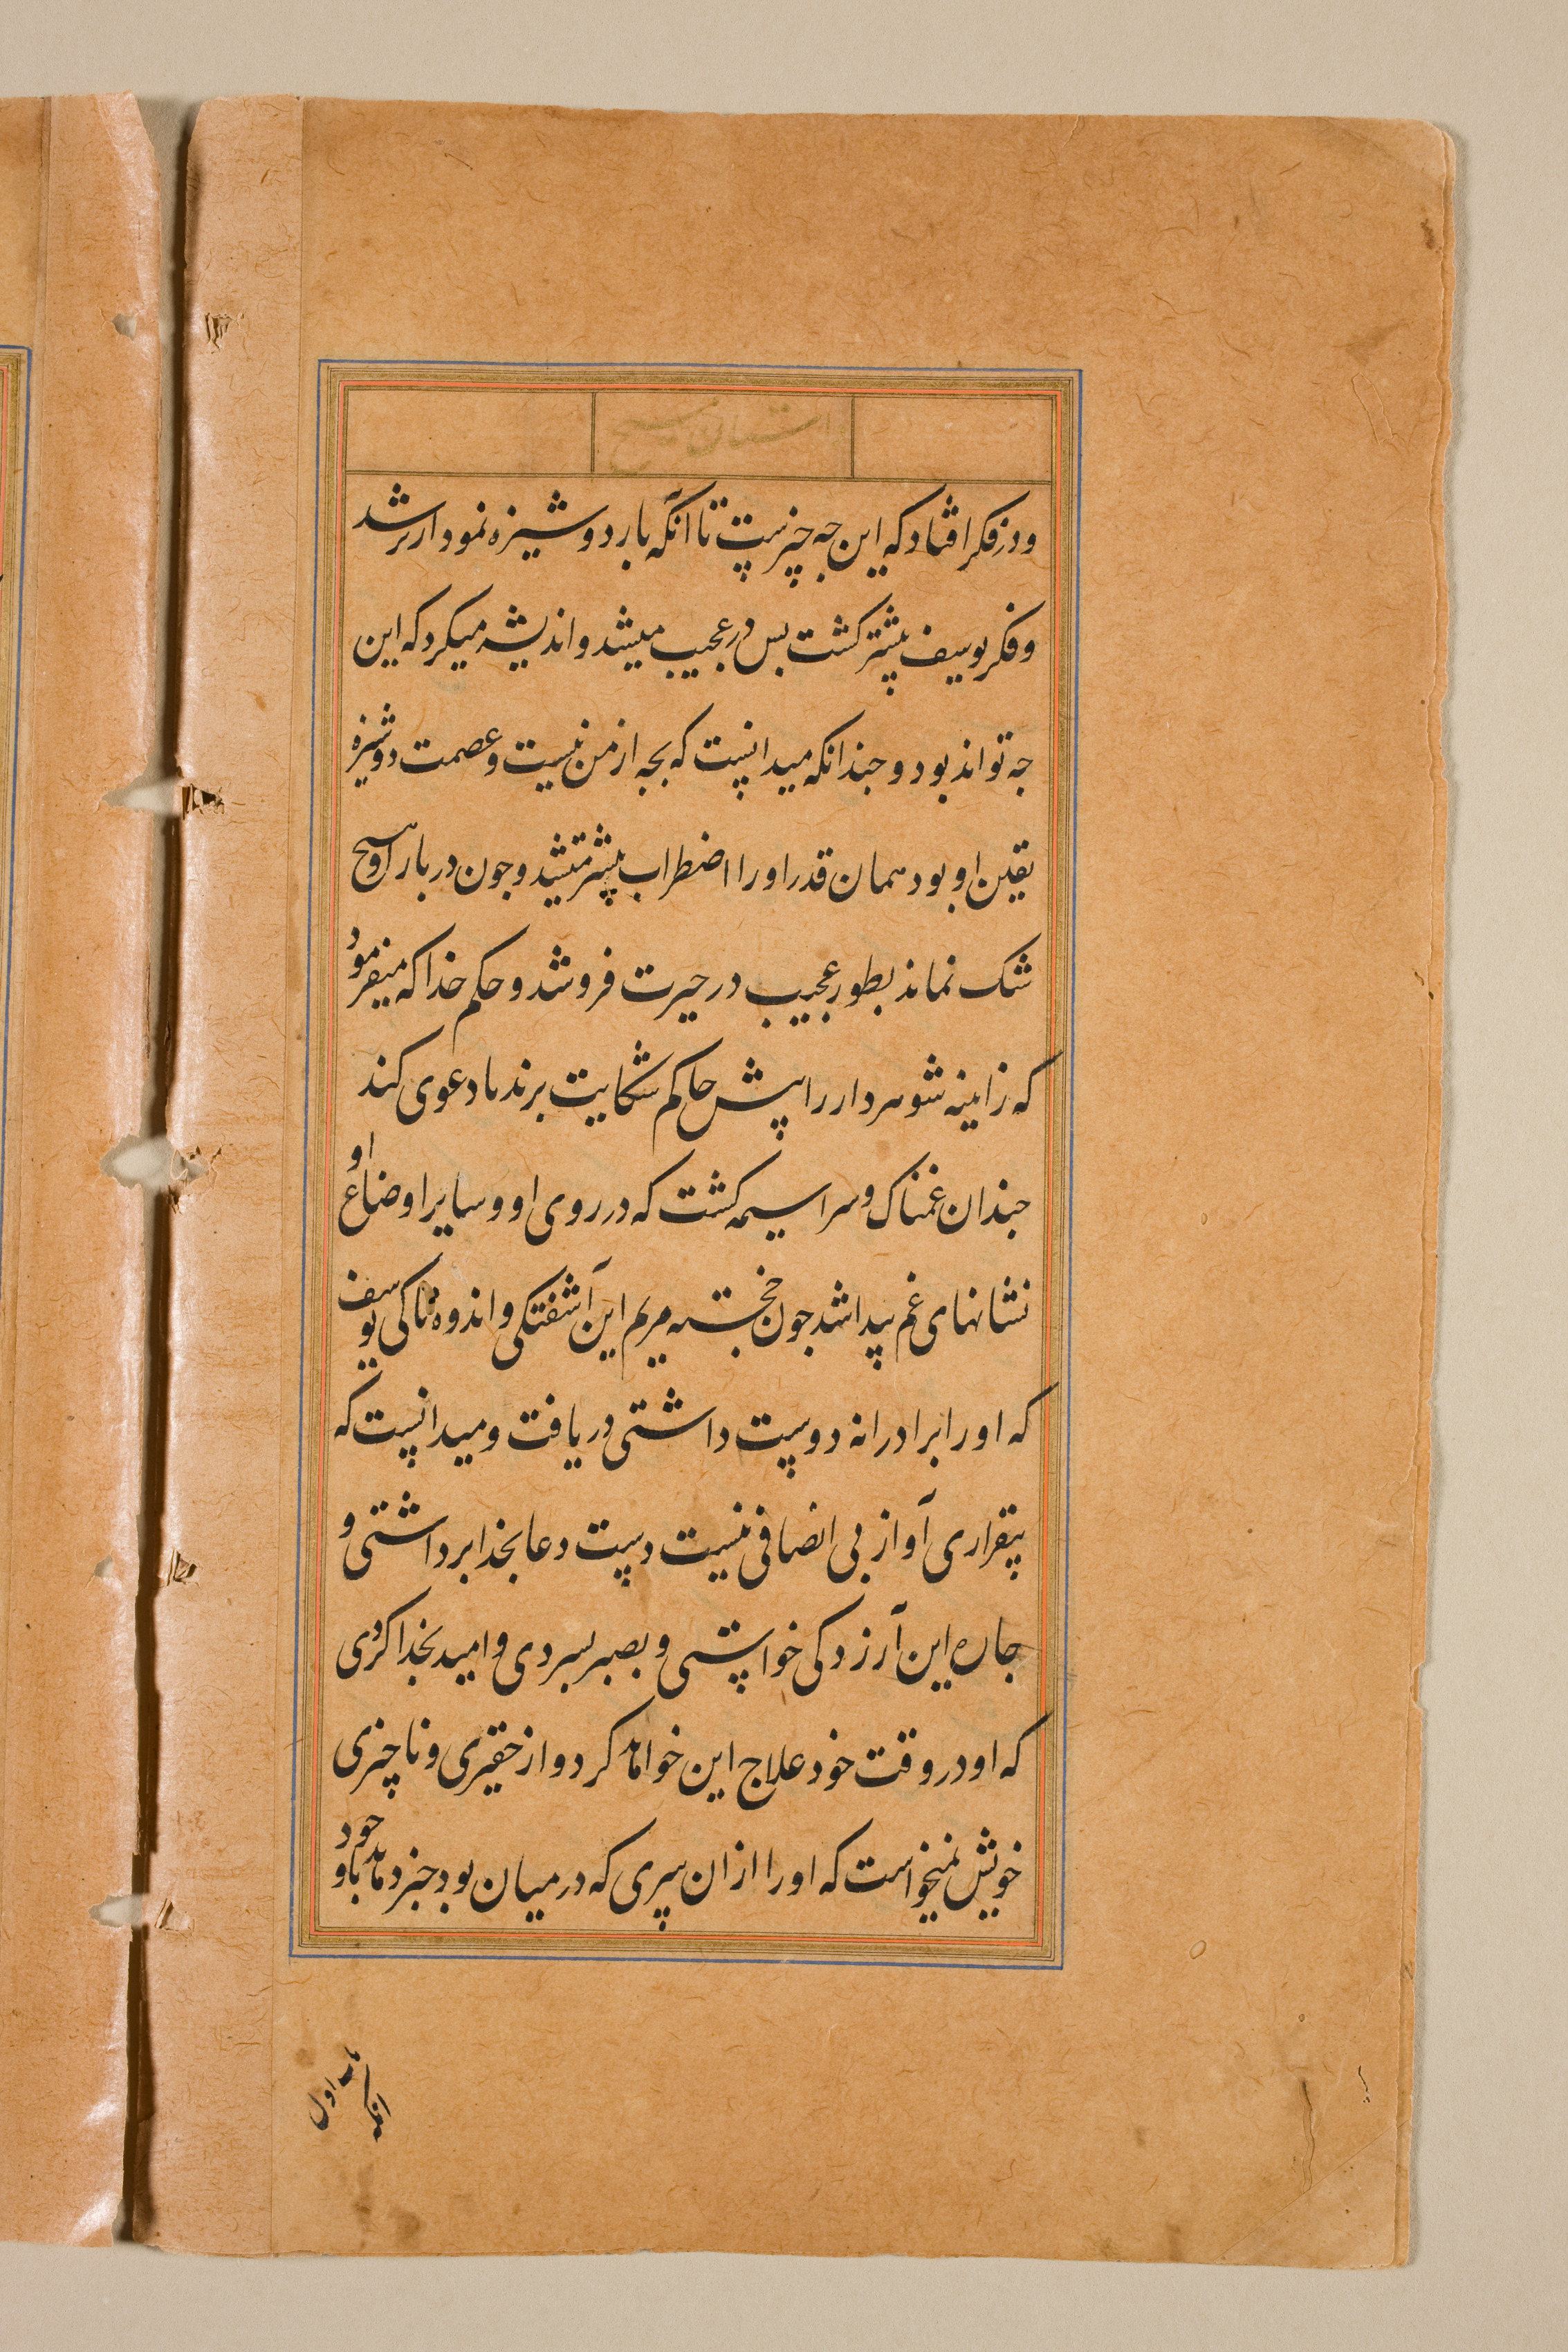 داستان مسیح
و در فکر افتاد که این چه چیزست تا آنکه بار دوشیزه نمودارتر شد
و فکر یوسف بیشتر کشت بس در عجیب میشد و اندیشه میکرد که این
جه تواند بود و جندانکه میدانست که بجه از من نیست و عصمت دوشیزه
یقین او بود همان قدر او را اضطراب بیشتر میشد و جون در بار او هیچ
شک نماند بطور عجیب در حیرت فرو شد و حکم خدا که میفرمود
که زانیه شوهردار را پیش حاکم شکایت برند یا دعوی کند
جندان غمناک و سراسیمه کشت که در روی او و سایر اوضاع او
نشانهای غم پیدا شد جون خجسته مریم این آشفتکی و اندوهناکی یوسف
که او را برادرانه دوست داشتی دریافت و میدانست که
بیقراری او از بی انصافی نیست دست دعا بخدا برداشتی و
جاره این آرزدکی خواستی و بصبر بسردی و امید بخدا کردی
که او در وقت خود علاج این خواهد کرد و از حقیری و ناچیزی
خویش نمیخواست که او را از آن سری که در میان بود خبر دهد با وجود
انکه اول